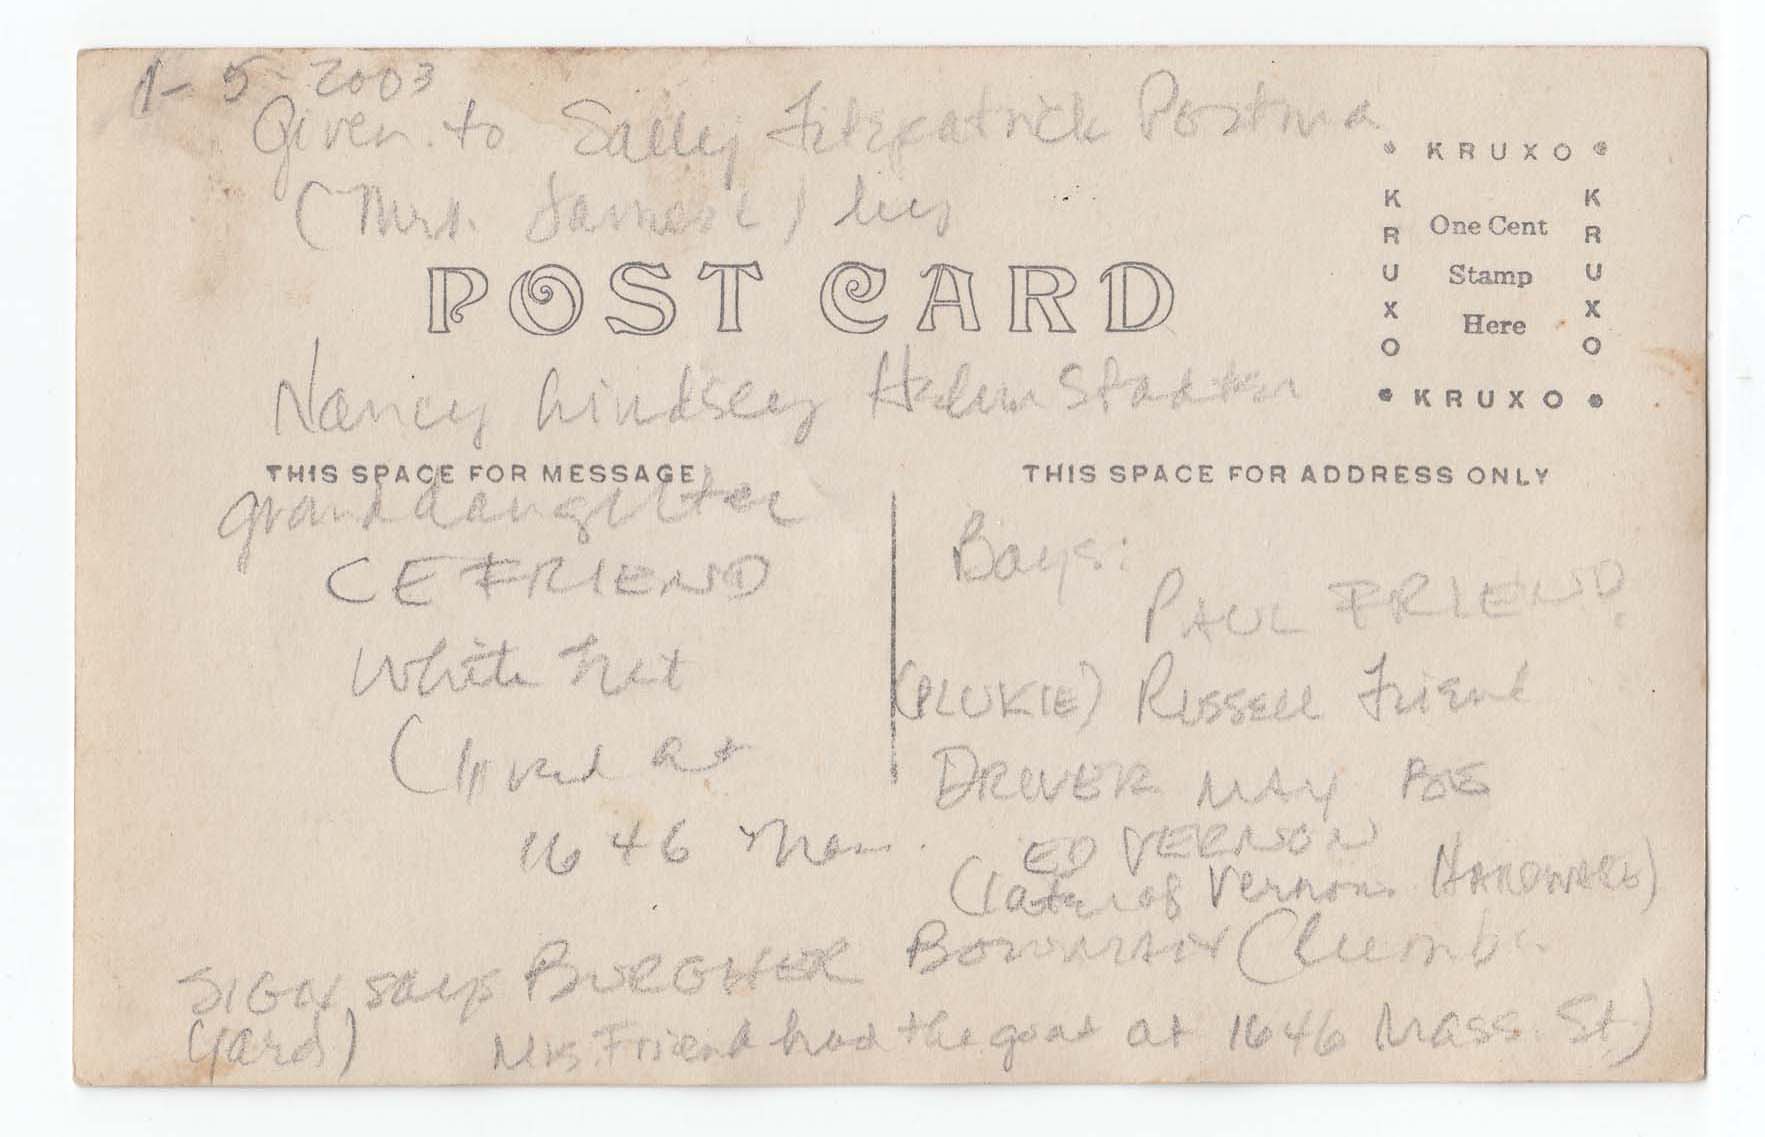 1-5-2003
Given to Sally Fitzpatrick Postma
(Mrs. James L) by
POST CARD
Nancy Lindsey Helmstadter
THIS SPACE FOR MESSAGE
granddaughter
CE FRIEND
White hat
(lived at
1646 Mass.
KRUXO
KRUXO
One Cent
Stamp
Here
KRUXO
KRUXO
THIS SPACE FOR ADDRESS ONLY
Boys:
PAUL FRIEND
(PLUKIE) Russell Friend
DRIVER MAY BE
ED VERNON
(later of Vernon HARDWARE)
SIGN says BURGHER BOWMAN (Lumber
Yard)
Mrs. Friend had the goat at 1646 Mass. St.)